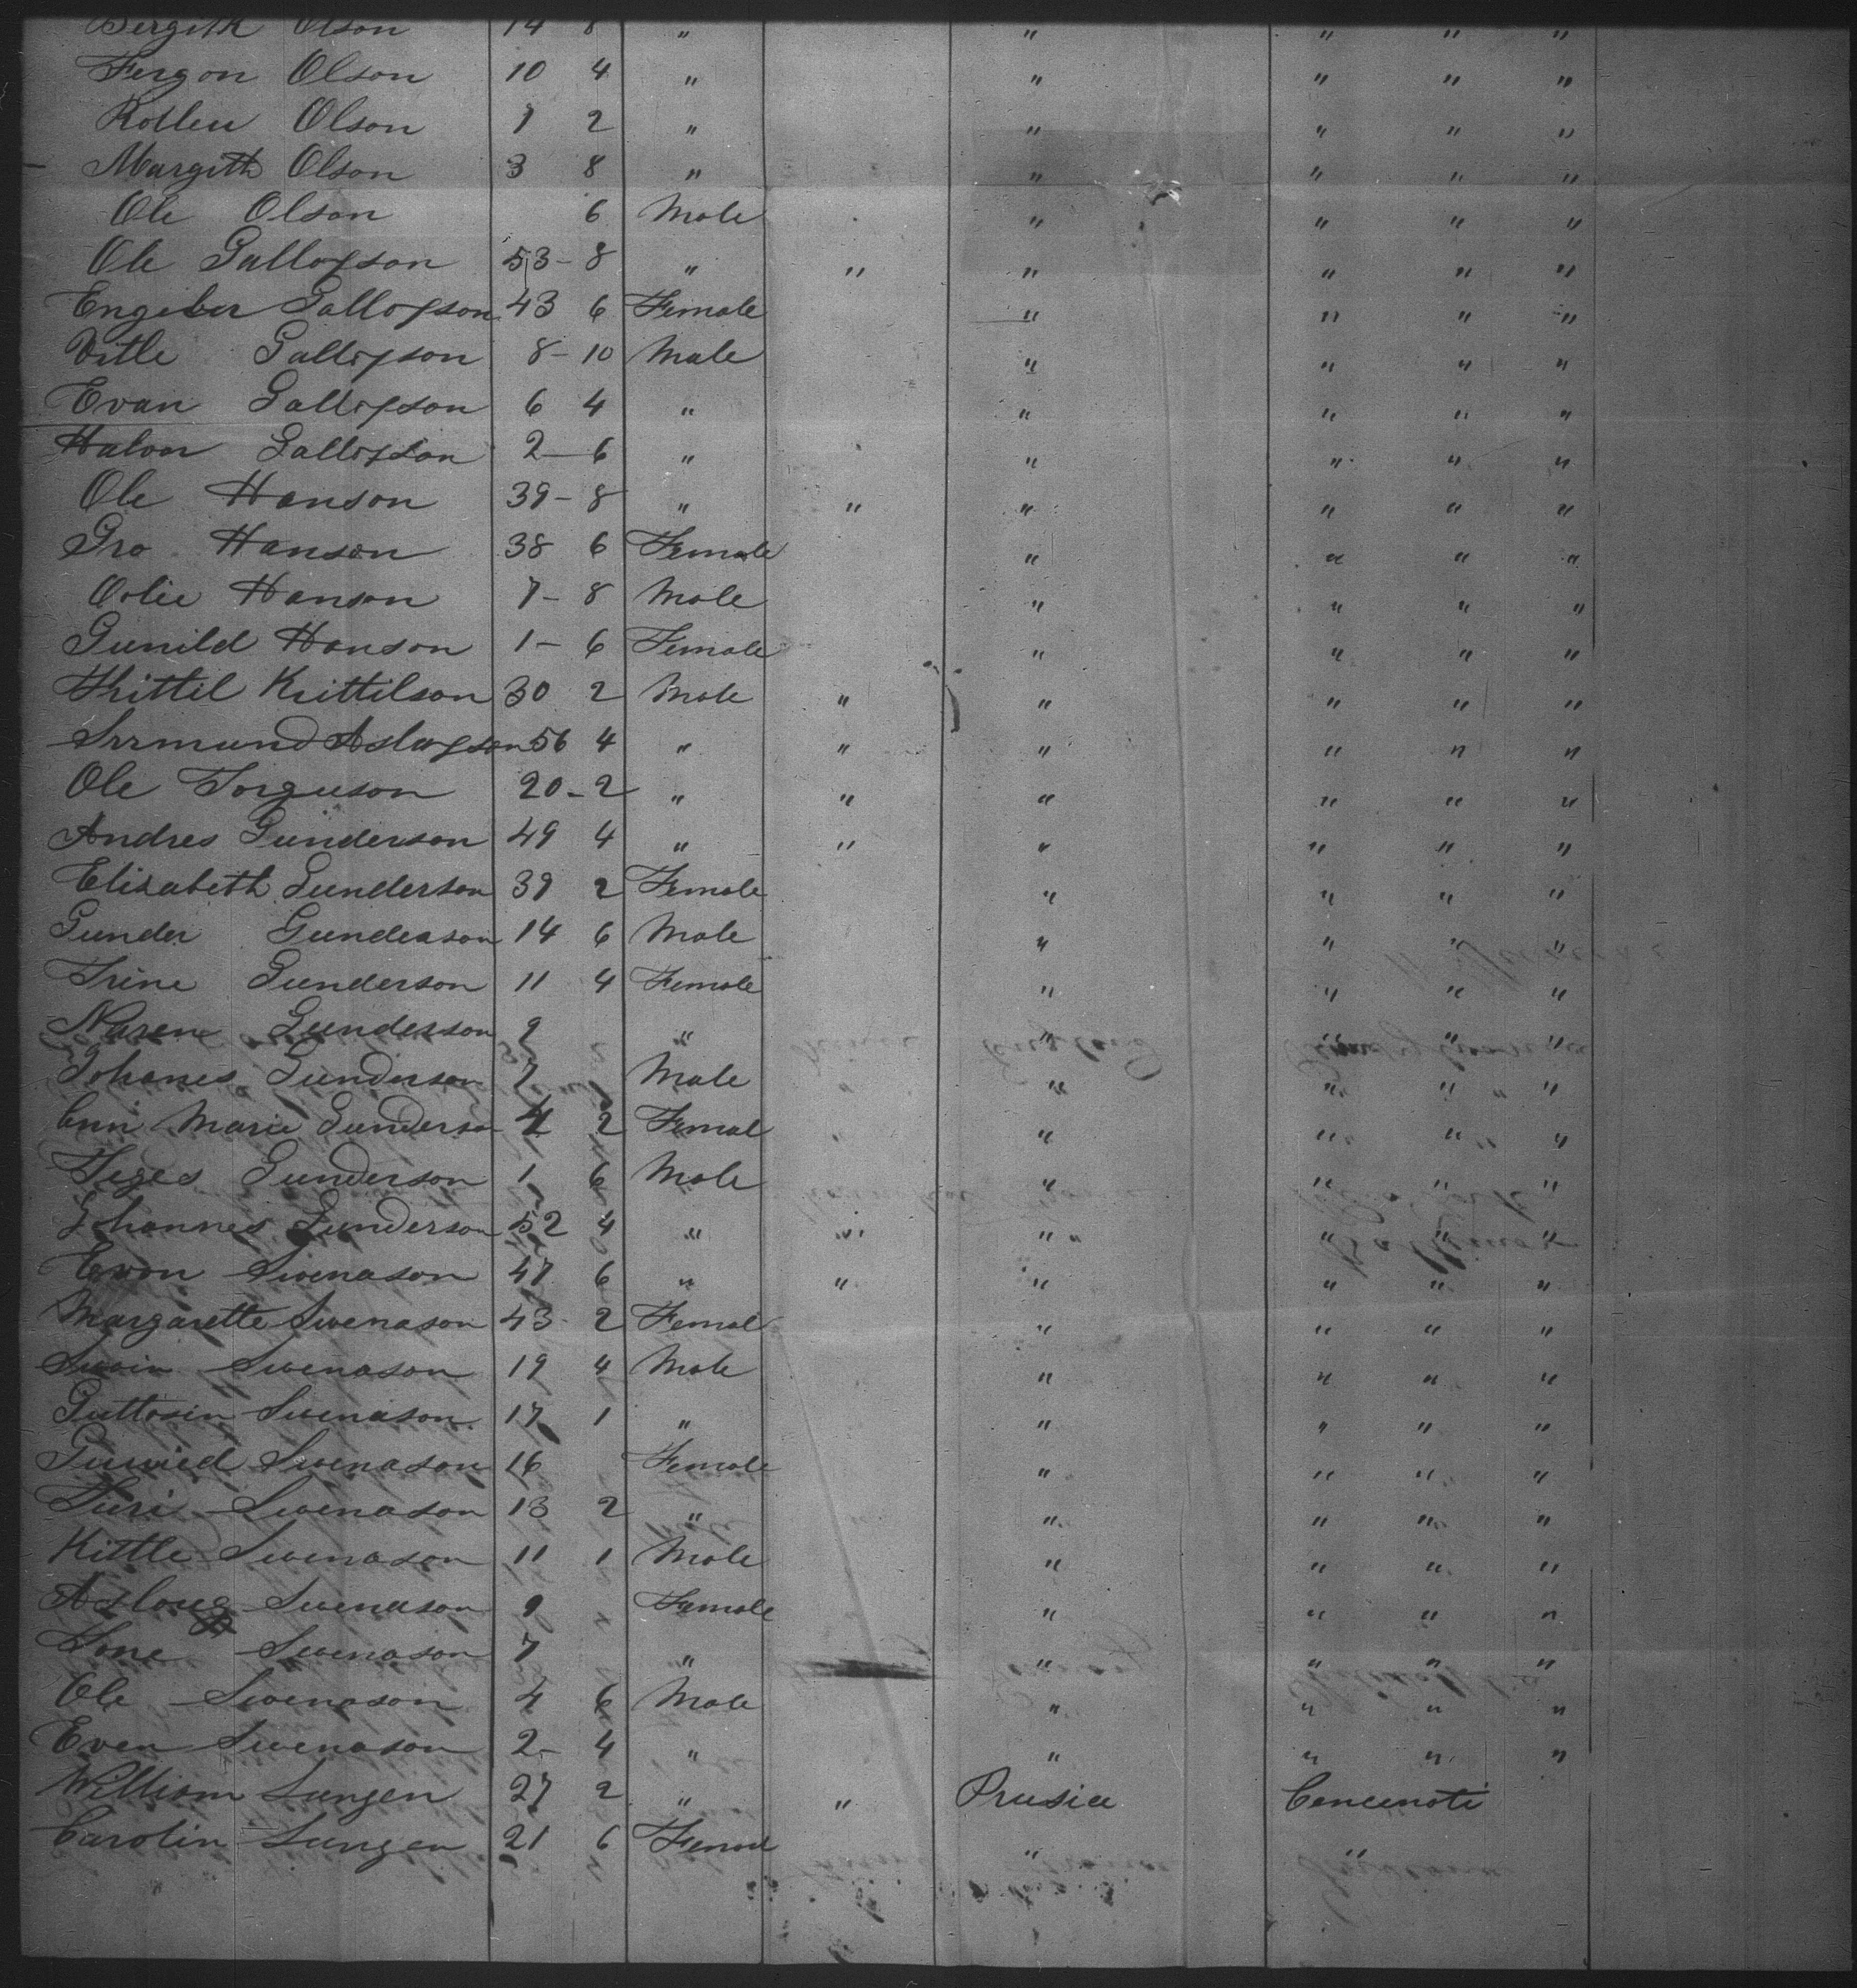 Bergith Olson 14 8 " " " " "
Fergon Olson 10 4 " " " " "
Rollen Olson 7 2 " " " " "
Margith Olson 3 8 " " " " "
Ole Olson 6 Male " " " "
Ole Gallofson 53-8 " " " " " "
Engeber Gallofson 43 6 Female " " " "
Vitle Gallofson 8-10 Male " " " "
Evan Gallofson 6 4 " " " " "
Halvor Gallofson 2-6 " " " " "
Ole Hanson 39-8 " " " " " "
Gro Hanson 38 6 Female " " " "
Orlie Hanson 7-8 Male " " " "
Gunild Hanson 1-6 Female " " " "
Kittil Kittilson 30 2 Male " " " " "
Srrmund Aslagson 56 4 " " " " " "
Ole Torguson 20-2 " " " " " "
Andres Gunderson 49 4 " " " " " "
Elizabeth Gunderson 39 2 Female " " " "
Gunder Gunderson 14 6 Male " " " "
Trine Gunderson 11 4 Female " " " "
Naren Gunderson 9 " " " " "
Johanes Gunderson 7 Male " " " "
Ann Marie Gunderso 4 2 Femal " " " "
Teges Gunderson 1 6 Male " " " "
Johannes Gunderson 52 4 " " " " " "
Evon Swenason 47 6 " " " " " "
Margarette Swenason 43 2 Femal " " " "
Swin Swenason 19 4 Male " " " "
Guttosin Swenason 17 1 " " " " "
Gunied Swenason 16 Female " " " "
Turi Swenason 13 2 " " " " "
Kittle Swenason 11 1 Male " " " "
Asloug Swenason 9 Female " " " "
Tone Swenason 7 " " " " "
Ole Swenason 4 6 Male " " " "
Even Swenason 2- 4 " " " " "
William Langen 27 2 " " Prusia Cencenoti
Carolin Langen 21 6 Femal " "